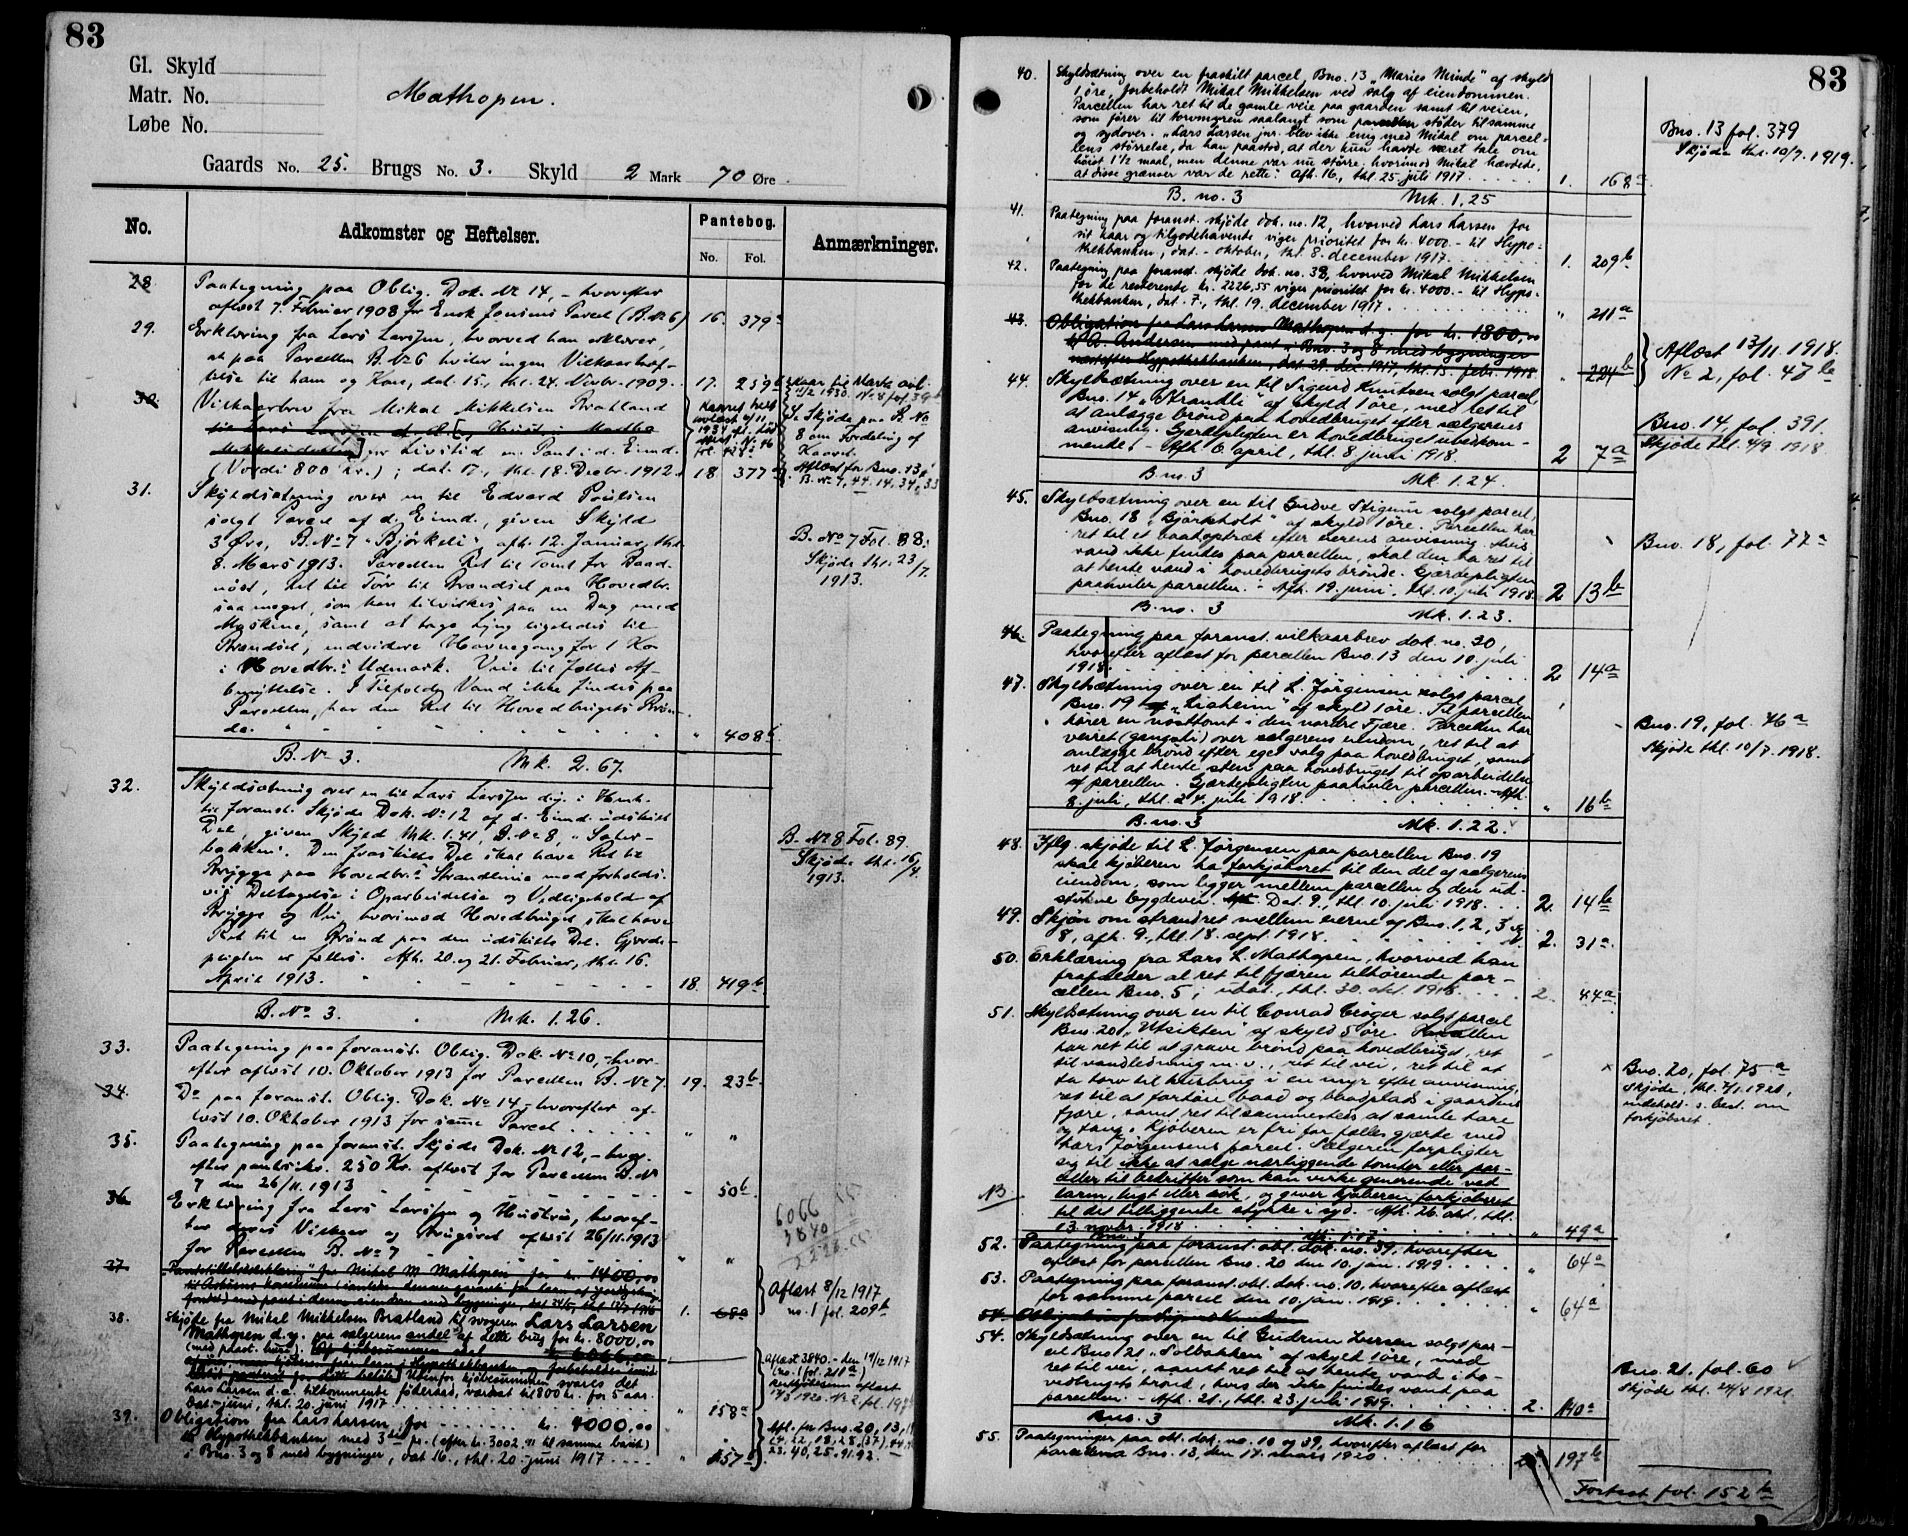 83
Gl. Skyld
Matr. No.
Løbe No.
Mathopen.
Gaards No. 25. Brugs No. 3. Skyld 2 Mark 70 Øre
No. Adkomster og Heftelser. Pantebog. No. Fol. Anmærkninger.
28 Paategning paa Oblig. Dok. No 14, – hvorefter
aflæst 7. Februar 1908 for Enok Jensens Parcel (B. No 6) 16. 379a
29. Erklæring fra Lars Larssen, hvorved han erklærer,
at paa Parcellen B. No 6 hviler ingen Vilkaarshef-
telse til ham og Kone, dat. 15., thl. 24. Novbr. 1909. 17. 259b
30. Vilkaarsbrev fra Mikal Mikkelsen Bratland
til Lars Larssen d. æ. [og Hustru Martha
Mikkelsdatter] for Livstid m. Pant i d. Eiend.
(Værdi 800 kr.); dat. 17., thl. 18. Decbr. 1912. 18 377a
Aflæst for Bno. 13,
31. Skyldsætning over en til Edvard Poulsen
solgt Parcel af d. Eiend., given Skyld
3 Øre, B. No 7 "Bjørkeli" afh. 12. Januar, thl.
8. Mars 1913. Parcellen Ret til Tomt for Baad-
nøst, Ret til Torv til Brændsel paa Hovedbr.
saa meget, som kan tilvirkes paa en Dag med
Maskine, samt at tage Lyng ligeledes til
Brændsel, endvidere Havnegang for 1 Ko
i Hovedbr.s Udmark. Veie til fælles Af-
benyttelse. I Tilfælde Vand ikke findes paa
Parcellen, har den Ret til Hovedbrugets Brøn-
de. " 408b
B. No 7 Fol. 88.
Skjøde thl. 23/7.
1913.
B. No 3. Mk. 2.67.
32. Skyldsætning over en til Lars Larssen d.y. i Henh.
til foranst. Skjøde Dok. No 12 af d. Eiend. udskilt
Del, given Skyld Mk. 1.41, B. No 8, "Sæter-
bakken". Den fraskilte Del skal have Ret til
Brygge paa Hovedbr.s Strandlinie mod forholds-
vis Deltagelse i Oparbeidelse og Vedligehold af
Brygge og Vei, hvorimod Hovedbruget skal have
Ret til en Brønd paa den udskilte Del. Gjerde-
pligten er fælles. Afh. 20. og 21. Februar, thl. 16.
April 1913. 18. 419b
B. No 8 Fol. 89.
Skjøde thl. 16/4.
1913.
B. No 3. Mk. 1.26.
33. Paategning paa foranst. Oblig. Dok. No 10, – hvor-
efter aflæst 10. Oktober 1913 for Parcellen B. No 7. 19. 23b
34. Do paa foranst. Oblig. Dok. No 14 – hvorefter af-
læst 10. Oktober 1913 for samme Parcel " "
35. Paategning paa foranst. Skjøde Dok. No 12, – hvor-
efter pantsikr. 250 Kr. aflæst for Parcellen B. No
7 den 26/11. 1913 " 50b
36 Erklæring fra Lars Larssen og Hustru, hvoref-
ter deres Vilkaar og Brugsret aflæst 26/11. 1913
for Parcellen B. No 7 " "
6066
3840
37 "Pantstillelseserklæring" fra Mikal M. Mathopen for kr. 1400,00
1. 68a
Aflæst 8/12 1917
no. 1 fol. 209b
38. Skjøde fra Mikal Mikkelsen Bratland til svogeren Lars Larsen
Mathopen d.y. paa sælgerens andel af dette brug for kr. 8000,00
Lars Larsen d.æ. tilkommende føderaad, værdsat til 800 kr. for 5 aar.
Dat. – juni, thl. 20. juni 1917 " 158a
Aflæst 3840. – den 19/12 1917
(no. 1 fol. 211a)
39. Obligation fra Lars Larsen for kr. 4000,00
til Hypothekbanken med 3die pr. (efter kr. 3002,91 til samme bank)
i Bno. 3 og 8 med bygninger, dat. 16., thl. 20. juni 1917 " 157b
Afl. for Bno. 20, 13,
83
40. Skyldsætning over en fraskilt parcel, Bno. 13 "Maries Minde" af skyld
1 øre, forbeholdt Mikal Mikkelsen ved salg af eiendommen.
Parcellen har ret til de gamle veie paa gaarden samt til veien,
som fører til torvmyren saalangt som parcellen støder til samme
og sydover. "Lars Larsen jnr. blev ikke enig med Mikal om parcel-
lens størrelse, da han paastod, at der kun havde været tale om
høist 1½ maal, men denne var nu større, hvorimod Mikal hævdede,
at disse grænser var de rette". Afh. 16., thl. 25. juli 1917. 1. 168a
Bno. 13 fol. 379
Skjøde thl. 10/7. 1919.
B. no. 3 Mk. 1.25
41. Paategning paa foranst. skjøde dok. no. 12, hvorved Lars Larsen for
sit kaar og tilgodehavende viger prioritet for kr. 4000.- til Hypo-
thekbanken, dat. – oktober, thl. 8. december 1917. 1. 209b
42. Paategning paa foranst. skjøde dok. no. 38, hvorved Mikal Mikkelsen
for de resterende kr. 2226,55 viger prioritet for kr. 4000.- til Hypo-
thekbanken, dat. 7., thl. 19. december 1917. " 211a
43. Obligation fra Lars Larsen Mathopen d. y. for kr. 1800,00
til A. Andersen med pant i Bno. 3 og 8 med bygninger
næstefter Hypothekbanken, dat. 29. dec. 1917, thl. 15. febr. 1918 " 224b
Aflæst 13/11. 1918.
No 2, fol. 47b
44. Skyldsætning over en til Sigurd Knudsen solgt parcel,
Bno. 14 "Strandli" af skyld 1 øre, med ret til
at anlægge brønd paa hovedbruget efter sælgerens
anvisning. Gjærdepligten er hovedbruget uvedkom-
mende. – Afh. 6. april, thl. 8. juni 1918. 2 7a
Bno. 14, fol. 391.
Skjøde thl. 4/9 1918.
B. no. 3 Mk. 1.24.
45. Skyldsætning over en til Gudve Stigum solgt parcel,
Bno. 18 "Bjørkholt" af skyld 1 øre. Parcellen har
ret til et baatoptræk efter eierens anvisning. Hvis
vand ikke findes paa parcellen, skal den ha ret til
at hente vand i hovedbrugets brønde. Gjærdepligten
paahviler parcellen. – Afh. 19. juni, thl. 10. juli 1918. 2 13b
Bno. 18, fol. 77a
B. no. 3 Mk. 1.23.
46. Paategning paa foranst. vilkaarsbrev dok. no. 30,
hvorefter aflæst for parcellen Bno. 13 den 10. juli
1918. 2 14a
47. Skyldsætning over en til L. Jørgensen solgt parcel
Bno. 19 "Liaheim" af skyld 1 øre. Til parcellen
hører en nøsttomt i den nordre Fjære. Parcellen har
veiret (gangsti) over sælgerens eiendom, ret til at
anlægge brønd efter eget valg paa hovedbruget, samt
ret til at hente sten paa hovedbruget til oparbeidelse
af parcellen. Gjærdepligten paahviler parcellen. Afh.
8. juli, thl. 24. juli 1918. " 16b
Bno. 19, fol. 46a
Skjøde thl. 10/7. 1918.
B. no. 3 Mk. 1.22.
48. Iflg. skjøde til L. Jørgensen paa parcellen Bno. 19
skal kjøberen ha forkjøbsret til den del af sælgerens
eiendom, som ligger mellem parcellen og den ud-
stukne bygdevei. Dat. 9., thl. 10. juli 1918. 2. 14b
49. Skjøn om strandret mellem eierne af Bno. 1, 2, 3 og
8, afh. 9., thl. 18. sept. 1918. 2. 31a
50. Erklæring fra Lars L. Mathopen, hvorved han
frafalder al ret til fjæren tilhørende par-
cellen Bno. 5; udat., thl. 30. okt. 1918. 2. 44a
51. Skyldsætning over en til Conrad Crøger solgt parcel
Bno. 20, "Utsikten" af skyld 5 øre. Parcellen
har ret til at grave brønd paa hovedbruget, ret
til vandledning m. v., ret til vei, ret til at
ta torv til husbrug i en myr efter anvisning,
ret til at fortøie baad og baadplads i gaardens
fjære, samt ret til sammesteds at samle tare
og tang. Kjøberen er fri for fælles gjærde med
Lars Jørgensens parcel. Sælgeren forpligter
sig til ikke at sælge nærliggende tomter eller par-
celler til bedrifter som kan virke generende ved
NB larm, lugt eller røk, og giver kjøberen forkjøbsret
til det tilliggende stykke i syd. – Afh. 26. okt., thl.
13. novbr. 1918 " 49a
Bno. 20, fol. 75a
Skjøde, thl. 7/1. 1920,
indehold. s. best. om
forkjøbsret.
Bno. 3 Mk. 1.17
52. Paategning paa foranst. obl. dok. no. 39, hvorefter
aflæst for parcellen Bno. 20 den 10. jan. 1919. " 64a
53. Paategning paa foranst. obl. dok. no. 10, hvorefter aflæst
for samme parcel den 10. jan. 1919. " 64a
54. Obligation fra Sigurd Knudsen
54. Skyldsætning over en til Gudrun Iversen solgt par-
cel Bno. 21 "Solbakken" af skyld 1 øre, med
ret til vei, samt ret til at hente vand i ho-
vedbrugets brønd, hvis der ikke findes vand paa
parcellen. – Afh. 21., thl. 23. juli 1919. 2. 110a
Bno. 21. fol. 60
Skjøde thl. 24/8 1921.
Bno. 3 Mk. 1.16
55. Paategninger paa obl. dok. no. 10 og 39, hvorefter aflæst for
parcellerne Bno. 13, den 17. mars 1920. 197b
Fortsat fol. 152b